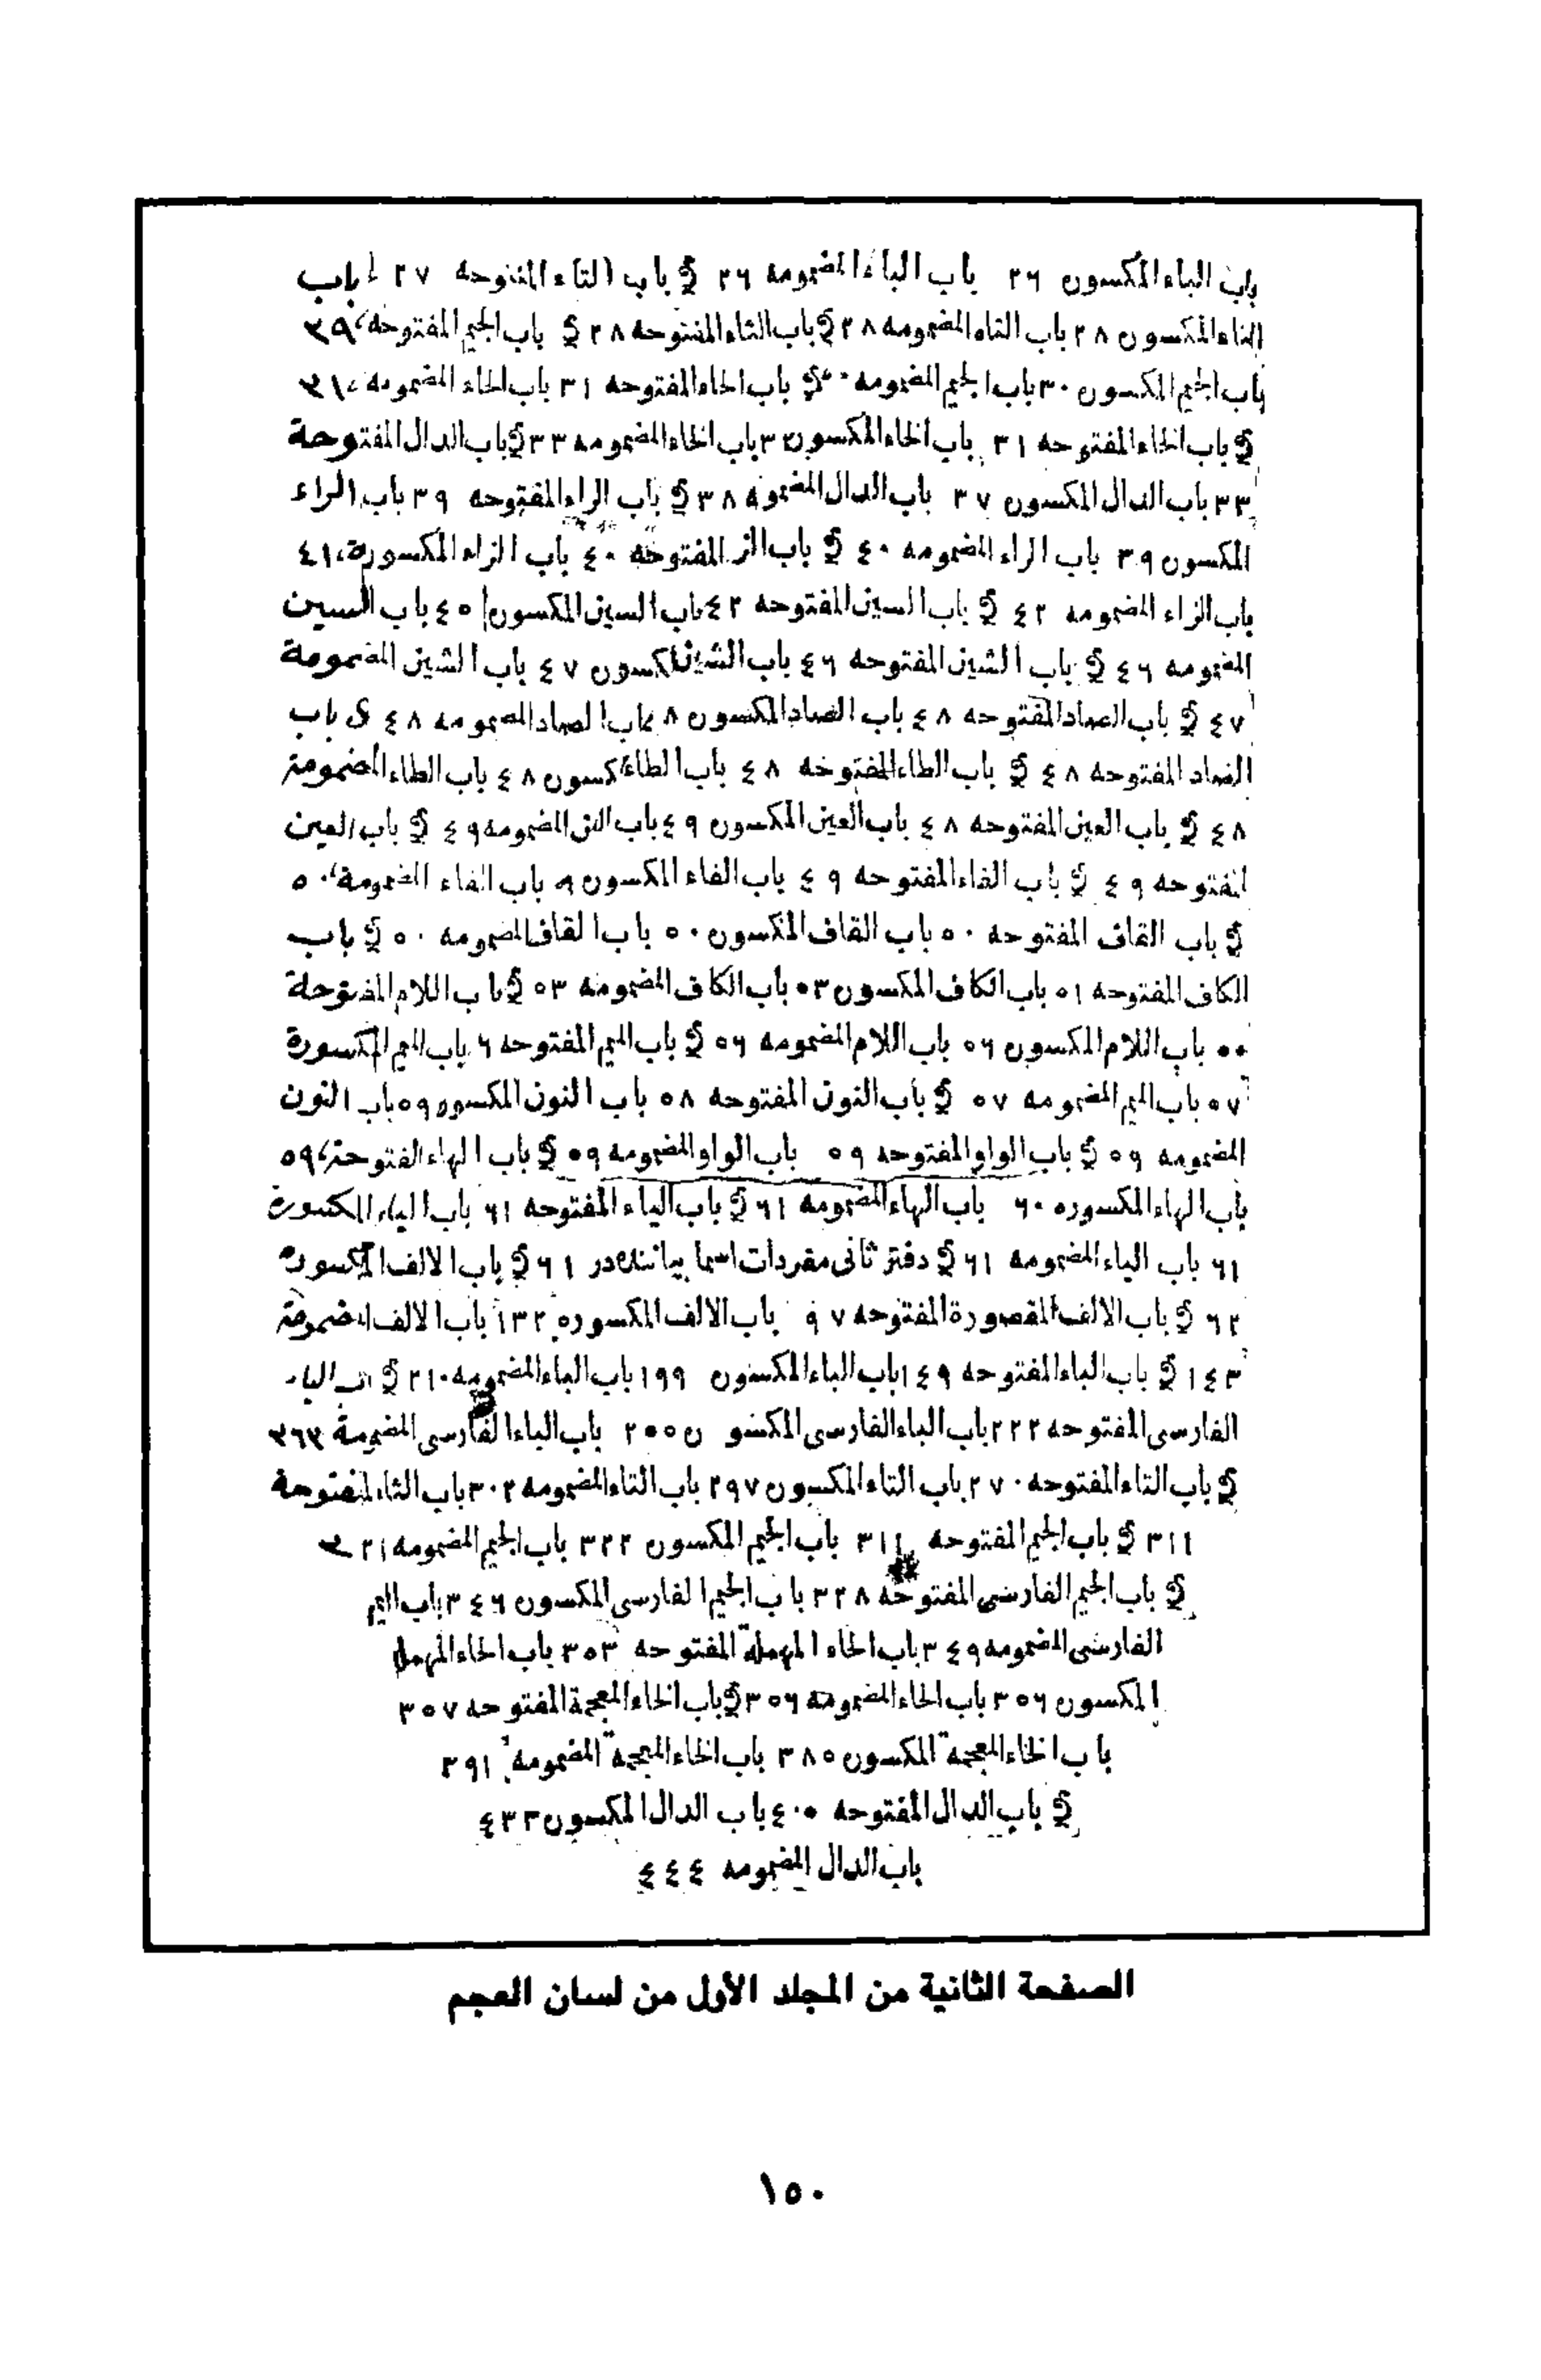 باب الباء المكسوره ٢٦ باب الباء المضمومه ٢٦ § باب التاء المفتوحه ٢٧ باب
التاء المكسوره ٢٨ باب التاء المضمومه ٢٨ § باب الثاء المفتوحه ٢٨ § باب الجيم المفتوحه ٢٩
باب الجيم المكسوره ٣٠ باب الجيم المضمومه § باب الحاء المفتوحه ٣١ باب الحاء المضمومه ٣١
§ باب الخاء المفتوحه ٣١ باب الخاء المكسوره ٣٣ باب الخاء المضمومه ٣٣ § باب الدال المفتوحة
٣٣ باب الدال المكسوره ٣٧ باب الدال المضمومه ٣٨ § باب الراء المفتوحه ٣٩ باب الراء
المكسوره ٣٩ باب الراء المضمومه ٤٠ § باب الز المفتوحه ٤٠ باب الزاء المكسورة ٤١
باب الزاء المضمومه ٤٢ § باب السين المفتوحه ٤٢ باب السين المكسوره ٤٥ باب السين
المضمومه ٤٦ § باب الشين المفتوحه ٤٦ باب الشين المكسوره ٤٧ باب الشين المضمومة
٤٧ § باب الصاد المفتوحه ٤٨ باب الصاد المكسوره ٨ باب الصاد المضمومه ٤٨ § باب
الضاد المفتوحه ٤٨ § باب الطاء المفتوحه ٤٨ باب الطاء المكسوره ٤٨ باب الطاء المضمومة
٤٨ § باب العين المفتوحه ٤٨ باب العين المكسوره ٤٩ باب المضمومه ٤٩ § باب العين
المفتوحه ٤٩ § باب الفاء المفتوحه ٤٩ باب الفاء المكسوره باب الفاء المضمومة ٥٠
§ باب القاف المفتوحه ٥٠ باب القاف المكسوره ٥٠ باب القاف المضمومه ٥٠ § باب
الكاف المفتوحه ٥١ باب الكاف المكسوره ٥٣ باب الكاف المضمومه ٥٣ § باب اللام المفتوحة
٥٥ باب اللام المكسوره ٥٦ باب اللام المضمومه ٥٦ § باب الميم المفتوحه ٦ باب الميم المكسورة
٥٧ باب الميم المضمومه ٥٧ § باب النون المفتوحه ٥٨ باب النون المكسوره ٥٩ باب النون
المضمومه ٥٩ § باب الواو المفتوحه ٥٩ باب الواو المضمومه ٥٩ § باب الهاء المفتوحة ٥٩
باب الهاء المكسوره ٦٠ باب الهاء المضمومه ٦١ § باب الياء المفتوحه ٦١ باب الياء المكسورة
٦١ باب الياء المضمومه ٦١ § دفتر ثانى مفردات اسما بياننده در ٦١ § باب الالف المكسوره
٦٢ § باب الالف المقصورة المفتوحه ٩٧ باب الالف المكسوره ١٣٢ باب الالف المضمومة
١٤٣ § باب الباء المفتوحه ١٤٩ باب الباء المكسوره ١٩٩ باب الباء المضمومه ٢١٠ § باب الباء
الفارسى المفتوحه ٢٢٢ باب الباء الفارسى المكسوره ٢٥٥ باب الباء الفارسى المضمومة ٢٦٣
§ باب التاء المفتوحه ٢٧٠ باب التاء المكسوره ٢٩٧ باب التاء المضمومه ٣٠٢ باب الثاء المفتوحة
٣١١ § باب الجيم المفتوحه ٣١١ باب الجيم المكسوره ٣٢٢ باب الجيم المضمومه
§ باب الجيم الفارسى المفتوحه ٣٢٨ باب الجيم الفارسى المكسوره ٣٤٦ باب الجيم
الفارسى المضمومه ٣٤٩ باب الحاء المهملة المفتوحه ٣٥٣ باب الحاء المهملة
المكسوره ٣٥٦ باب الحاء المضمومه ٣٥٦ § باب الخاء المعجمة المفتوحه ٣٥٧
باب الخاء المعجمة المكسوره ٣٨٥ باب الخاء المعجمة المضمومه ٣٩١
§ باب الدال المفتوحه ٤٠٠ باب الدال المكسوره ٤٣٣
باب الدال المضمومه ٤٤٤
الصفحة الثانية من المجلد الأول من لسان العجم
١٥٠